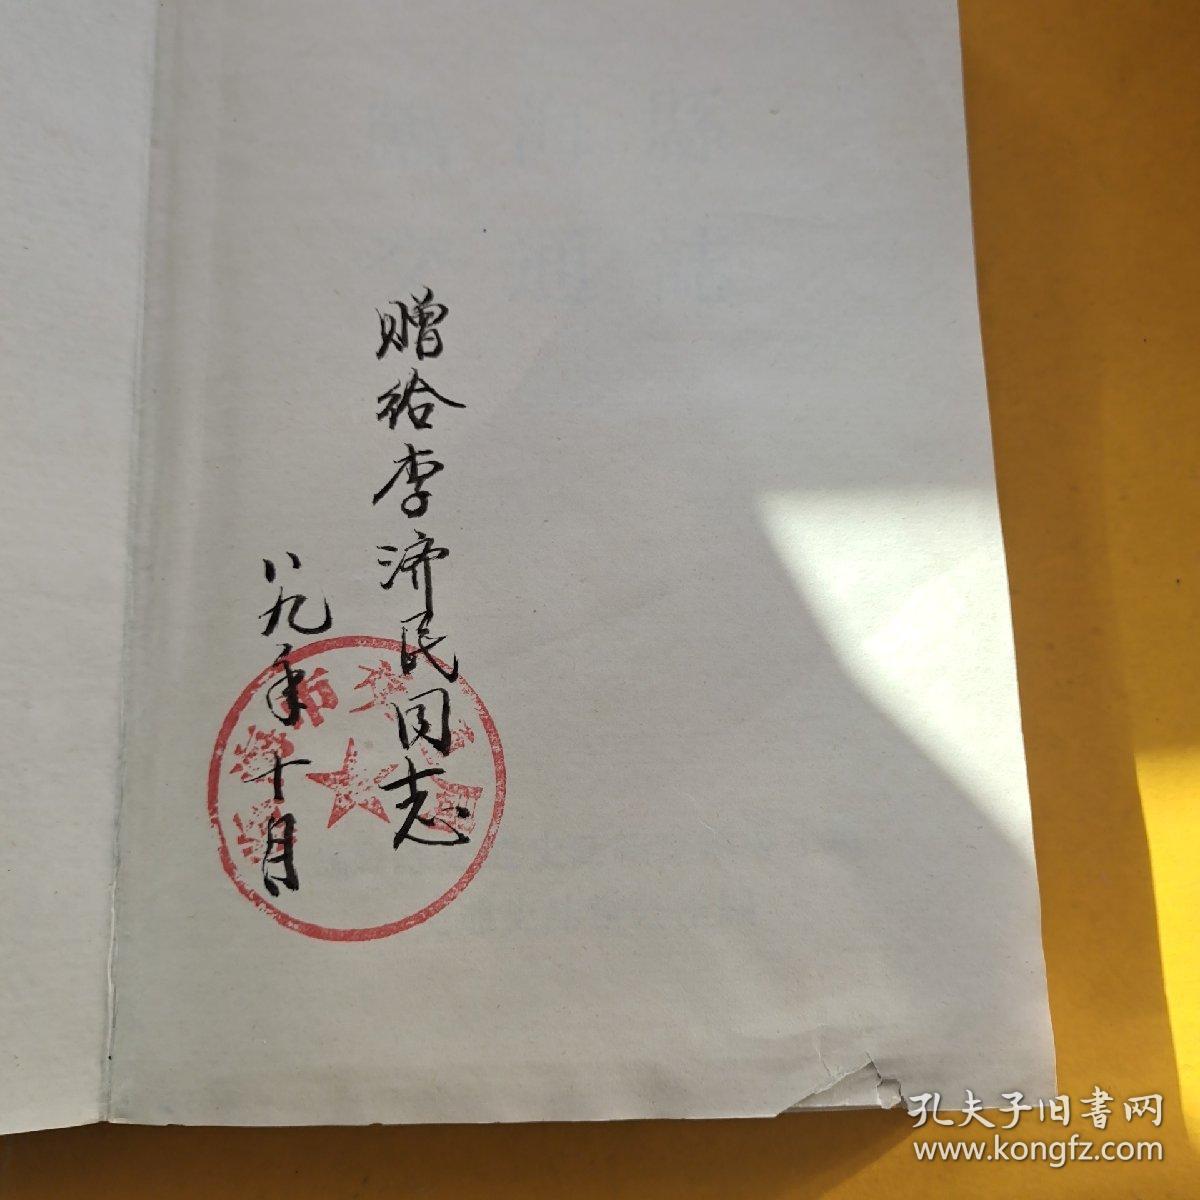 赠给李济民同志
八九年十月
孔夫子旧书网
www.kongfz.com